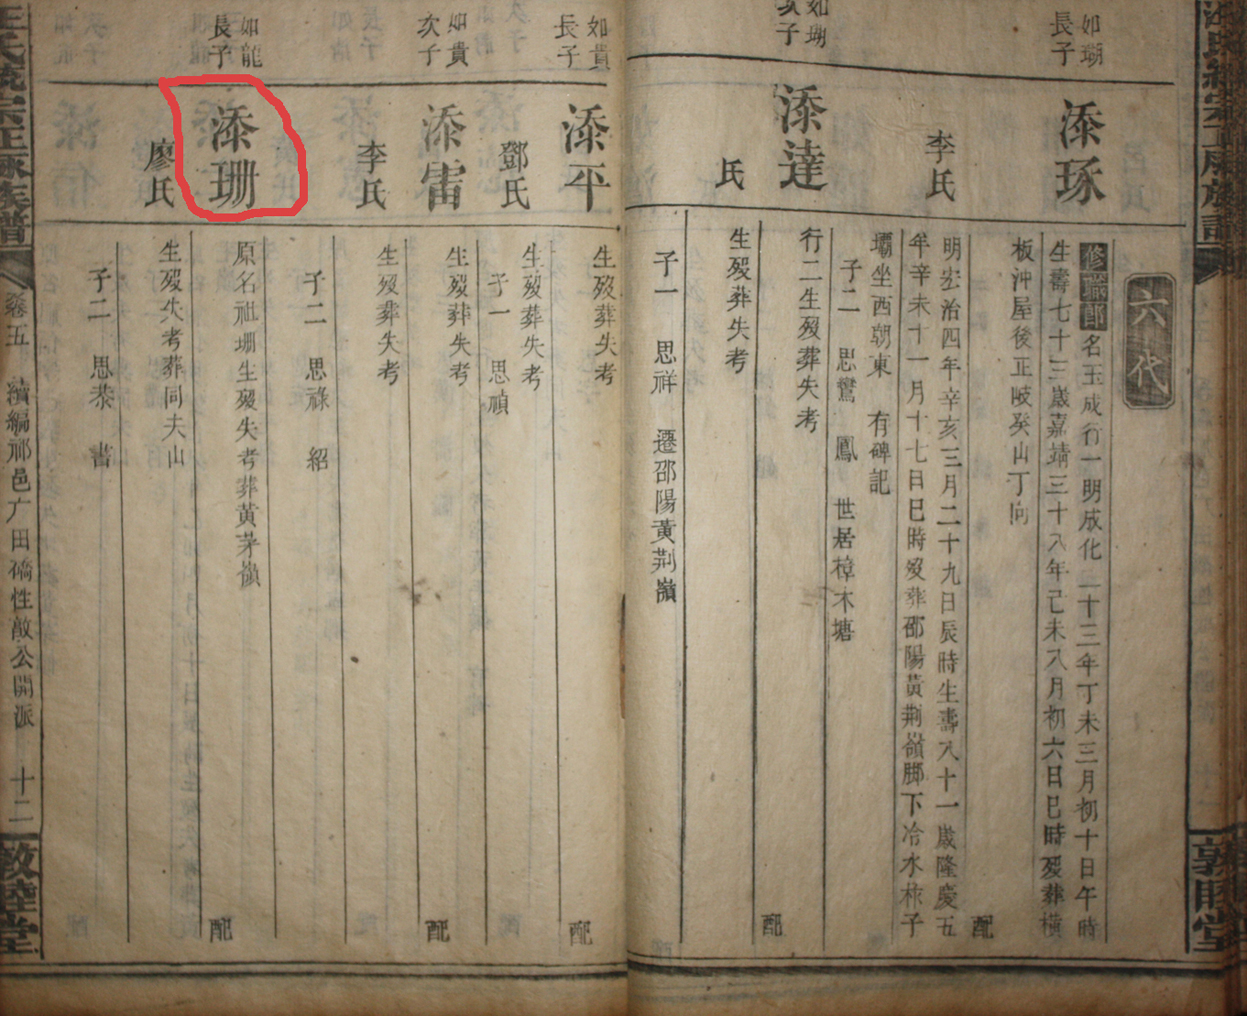 六代
如瑚
長子
添琢
修職郎名玉成行一明成化二十三年丁未三月初十日午時
生壽七十三歲嘉靖三十八年己未八月初六日巳時歿葬橫
板沖屋後正岐癸山丁向
配
李氏
明宏治四年辛亥三月二十九日辰時生壽八十一歲隆慶五
年辛未十一月十七日巳時歿葬邵陽黃荆嶺脚下冷水柞子
壩坐西朝東 有碑記
子二 思鸞 鳳 世居樟木塘
如瑚
次子
添達
行二生歿葬失考
配
氏
生歿葬失考
子一 思祥 遷邵陽黃荆嶺
如貴
長子
添平
生歿葬失考
配
鄧氏
生歿葬失考
子一 思禎
如貴
次子
添雷
生歿葬失考
配
李氏
生歿葬失考
子二 思祿 紹
如龍
長子
添珊
原名祖珊生歿失考葬黃茅嶺
配
廖氏
生歿失考葬同夫山
子二 思恭 書
卷五 續編邵邑广田礄性敵公開派 十二
敦睦堂